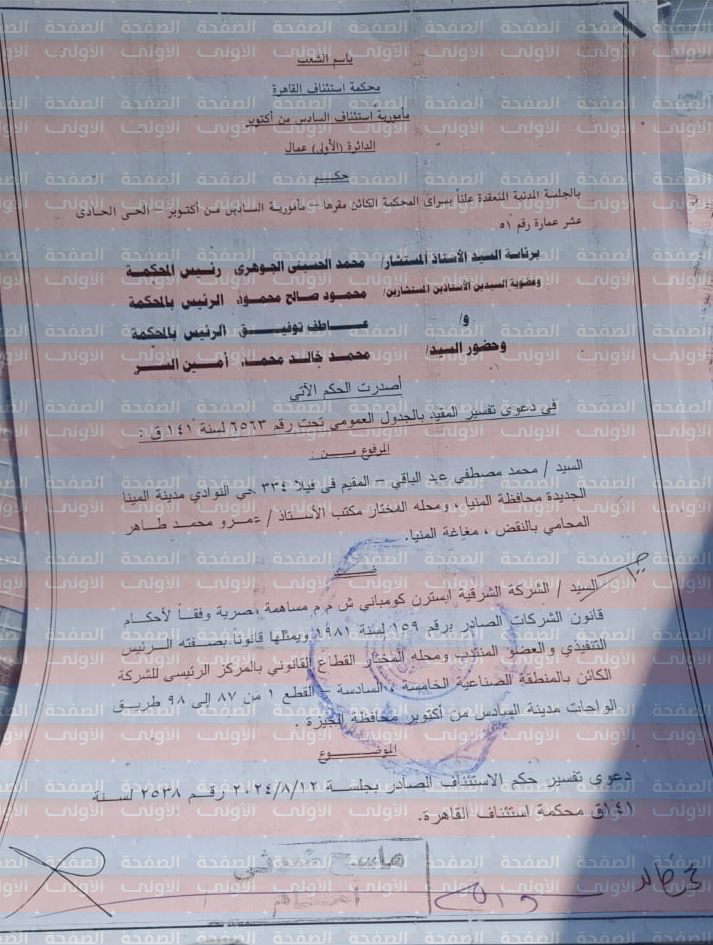 باسم الشعب
محكمة استئناف القاهرة
مأمورية استئناف السادس من أكتوبر
الدائرة (الأولى) عمال
حكم
بالجلسة المدنية المنعقدة علناً بسراى المحكمة الكائن مقرها – مأمورية السادس من أكتوبر – الحى الحادى
عشر عمارة رقم ٥١
برئاسة السيد الأستاذ المستشار/ محمد الحسينى الجوهرى رئيس المحكمة
وعضوية السيدين الأستاذين المستشارين/ محمود صالح محمود، الرئيس بالمحكمة
و/ عاطف توفيق الرئيس بالمحكمة
وحضور السيد/ محمد خالد محمد، أمين السر
أصدرت الحكم الآتي
في دعوى تفسير المقيد بالجدول العمومي تحت رقم ٦٥٦٣ لسنة ١٤١ ق :
المرفوع من :
السيد / محمد مصطفي عبد الباقي – المقيم فى فيلا ٣٣٤ حي النوادي مدينة المينا
الجديدة محافظة المنيا ، ومحله المختار مكتب الأستاذ / عمرو محمد طاهر
المحامي بالنقض ، مغاغة المنيا.
ضد
السيد / الشركة الشرقية ايسترن كومباني ش م م مساهمة مصرية وفقاً لأحكام
قانون الشركات الصادر برقم ١٥٩ لسنة ١٩٨١ ويمثلها قانوناً بصفته الرئيس
التنفيذي والعضو المنتدب ومحله المختار القطاع القانوني بالمركز الرئيسى للشركة
الكائن بالمنطقة الصناعية الخامسة ، السادسة – القطع ١ من ٨٧ إلى ٩٨ طريق
الواحات مدينة السادس من أكتوبر محافظة الجيزة .
الموضوع
دعوى تفسير حكم الاستئناف الصادر بجلسة ٢٠٢٤/٨/١٢ رقم ٢٥٣٨ لسنة
١٤١ق محكمة استئناف القاهرة.
ماسح ضوئي
الصفحة الأولى